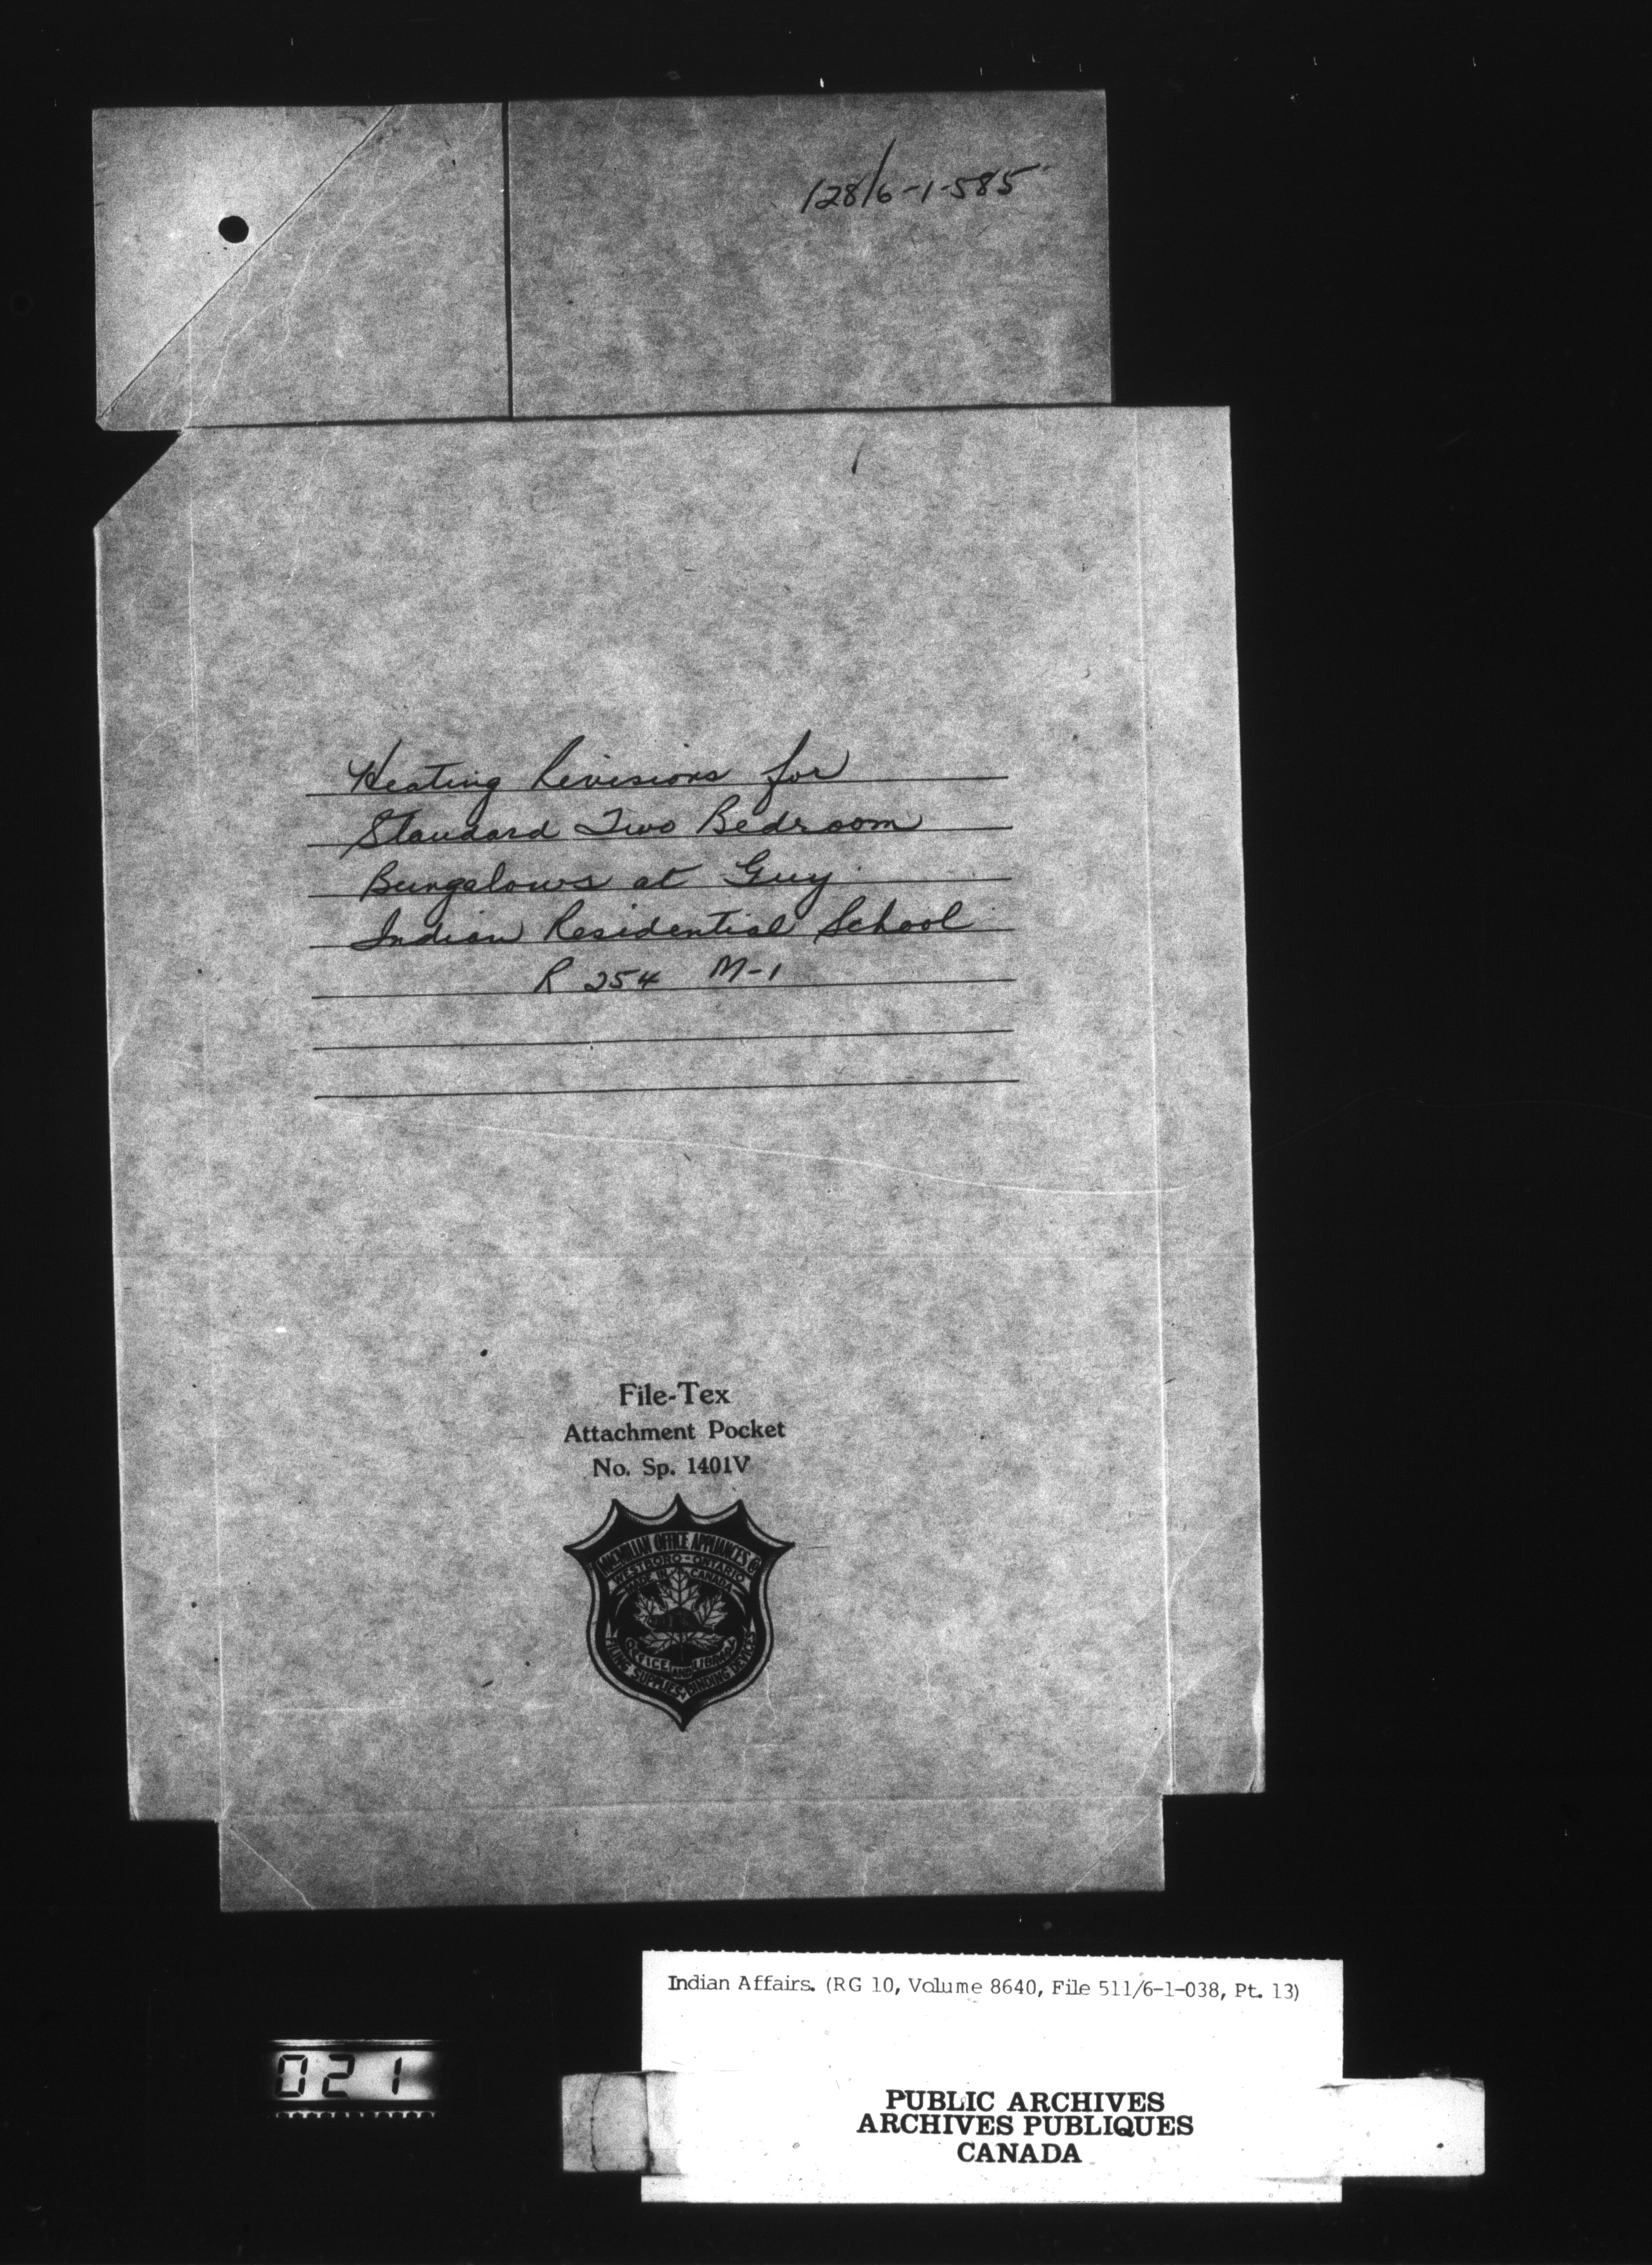 128/6-1-585
Heating Revisions for
Standard Two Bedroom
Bungalows at Guy
Indian Residential School
R 254 M-1
File-Tex
Attachment Pocket
No. Sp. 1401V
MACMILLAN OFFICE APPLIANCES Co
WESTBORO - ONTARIO
MADE IN CANADA
OFFICE AND LIBRARY
FILING SUPPLIES, BINDING DEVICES
Indian Affairs. (RG 10, Volume 8640, File 511/6-1-038, Pt. 13)
021
PUBLIC ARCHIVES
ARCHIVES PUBLIQUES
CANADA